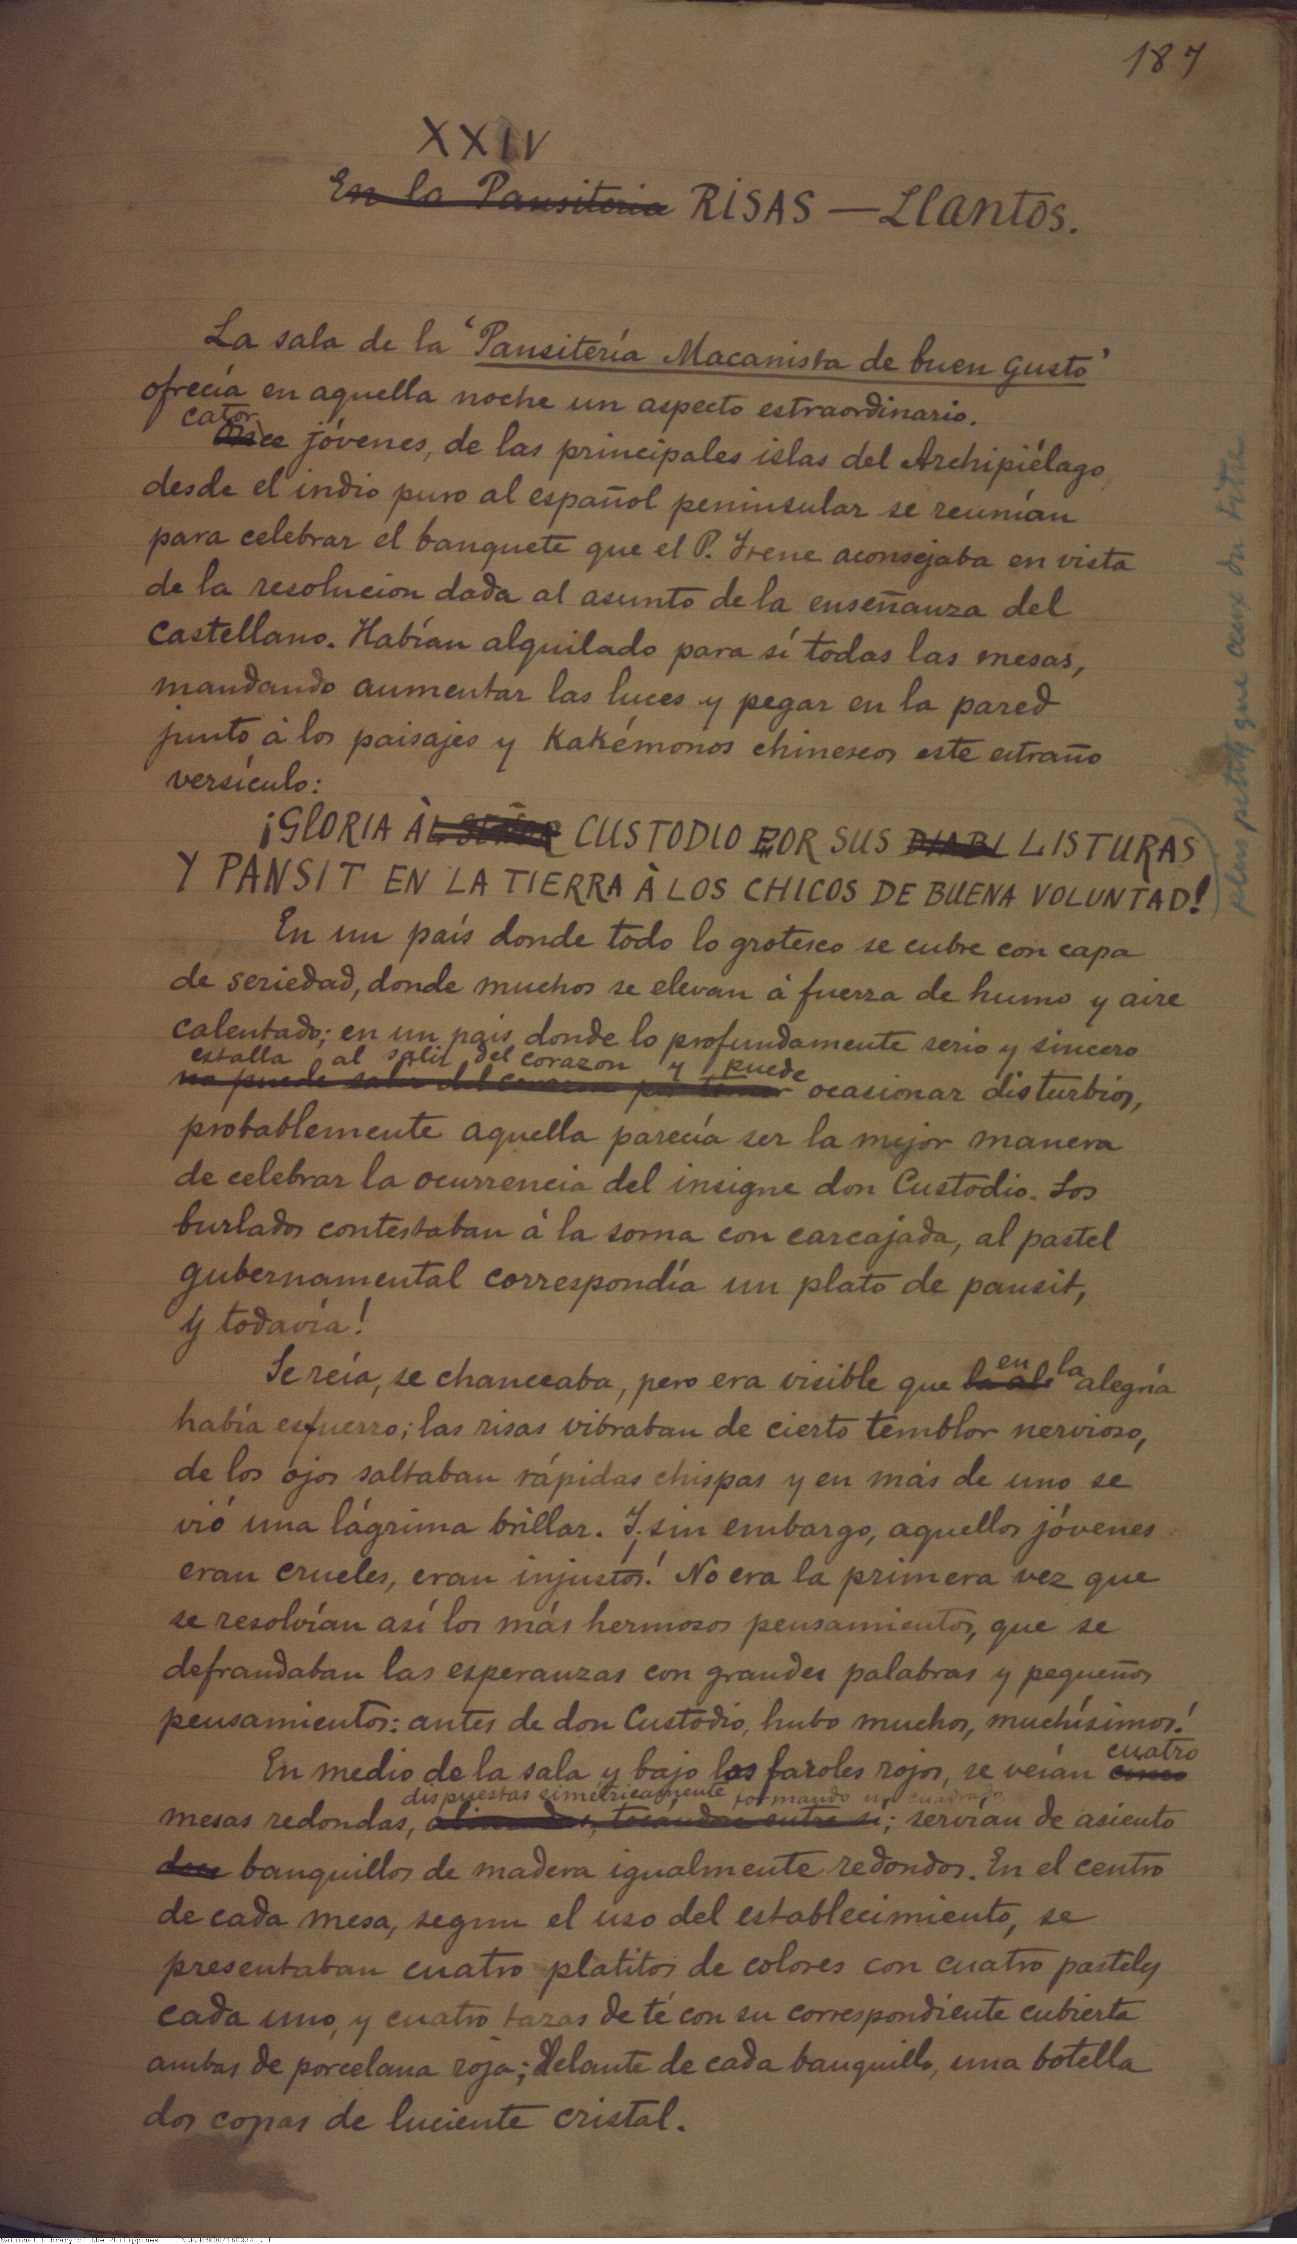 187
XXIV
En la Pansiteria RISAS — Llantos.
La sala de la 'Pansitería Macanista de buen gusto'
ofrecía en aquella noche un aspecto estraordinario.
cator
ce jóvenes, de las principales islas del Archipiélago
desde el indio puro al español peninsular se reunían
para celebrar el banquete que el P. Irene aconsejaba en vista
de la resolucion dada al asunto de la enseñanza del
castellano. Habían alquilado para sí todas las mesas,
mandando aumentar las luces y pegar en la pared
junto á los paisajes y Kakémonos chinescos este estraño
versículo:
¡GLORIA ÀL SEÑOR CUSTODIO POR SUS DIABL LISTURAS
Y PANSIT EN LA TIERRA À LOS CHICOS DE BUENA VOLUNTAD!
plus petit que ceux du titre
En un país donde todo lo grotesco se cubre con capa
de seriedad, donde muchos se elevan á fuerza de humo y aire
calentado; en un pais donde lo profundamente serio y sincero
estalla al salir del corazon y puede
no puede salir del corazon por temor ocasionar disturbios,
probablemente aquella parecía ser la mejor manera
de celebrar la ocurrencia del insigne don Custodio. Los
burlados contestaban á la sorna con carcajada, al pastel
gubernamental correspondía un plato de pansit,
y todavía!
Se reía, se chanceaba, pero era visible que la ale en la alegría
había esfuerzo; las risas vibraban de cierto temblor nervioso,
de los ojos saltaban rápidas chispas y en más de uno se
vió una lágrima brillar. Y, sin embargo, aquellos jóvenes
eran crueles, eran injustos! No era la primera vez que
se resolvían así los más hermosos pensamientos, que se
defraudaban las esperanzas con grandes palabras y pequeños
pensamientos: antes de don Custodio, hubo muchos, muchísimos!
En medio de la sala y bajo los faroles rojos, se veían cinco cuatro
dispuestas simétricamente formando un cuadrado
mesas redondas, alineadas, tocandose entre si; servían de asiento
doce banquillos de madera igualmente redondos. En el centro
de cada mesa, segun el uso del establecimiento, se
presentaban cuatro platitos de colores con cuatro pasteles
cada uno, y cuatro tazas de té con su correspondiente cubierta
ambas de porcelana roja; delante de cada banquillo, una botella
dos copas de luciente cristal.